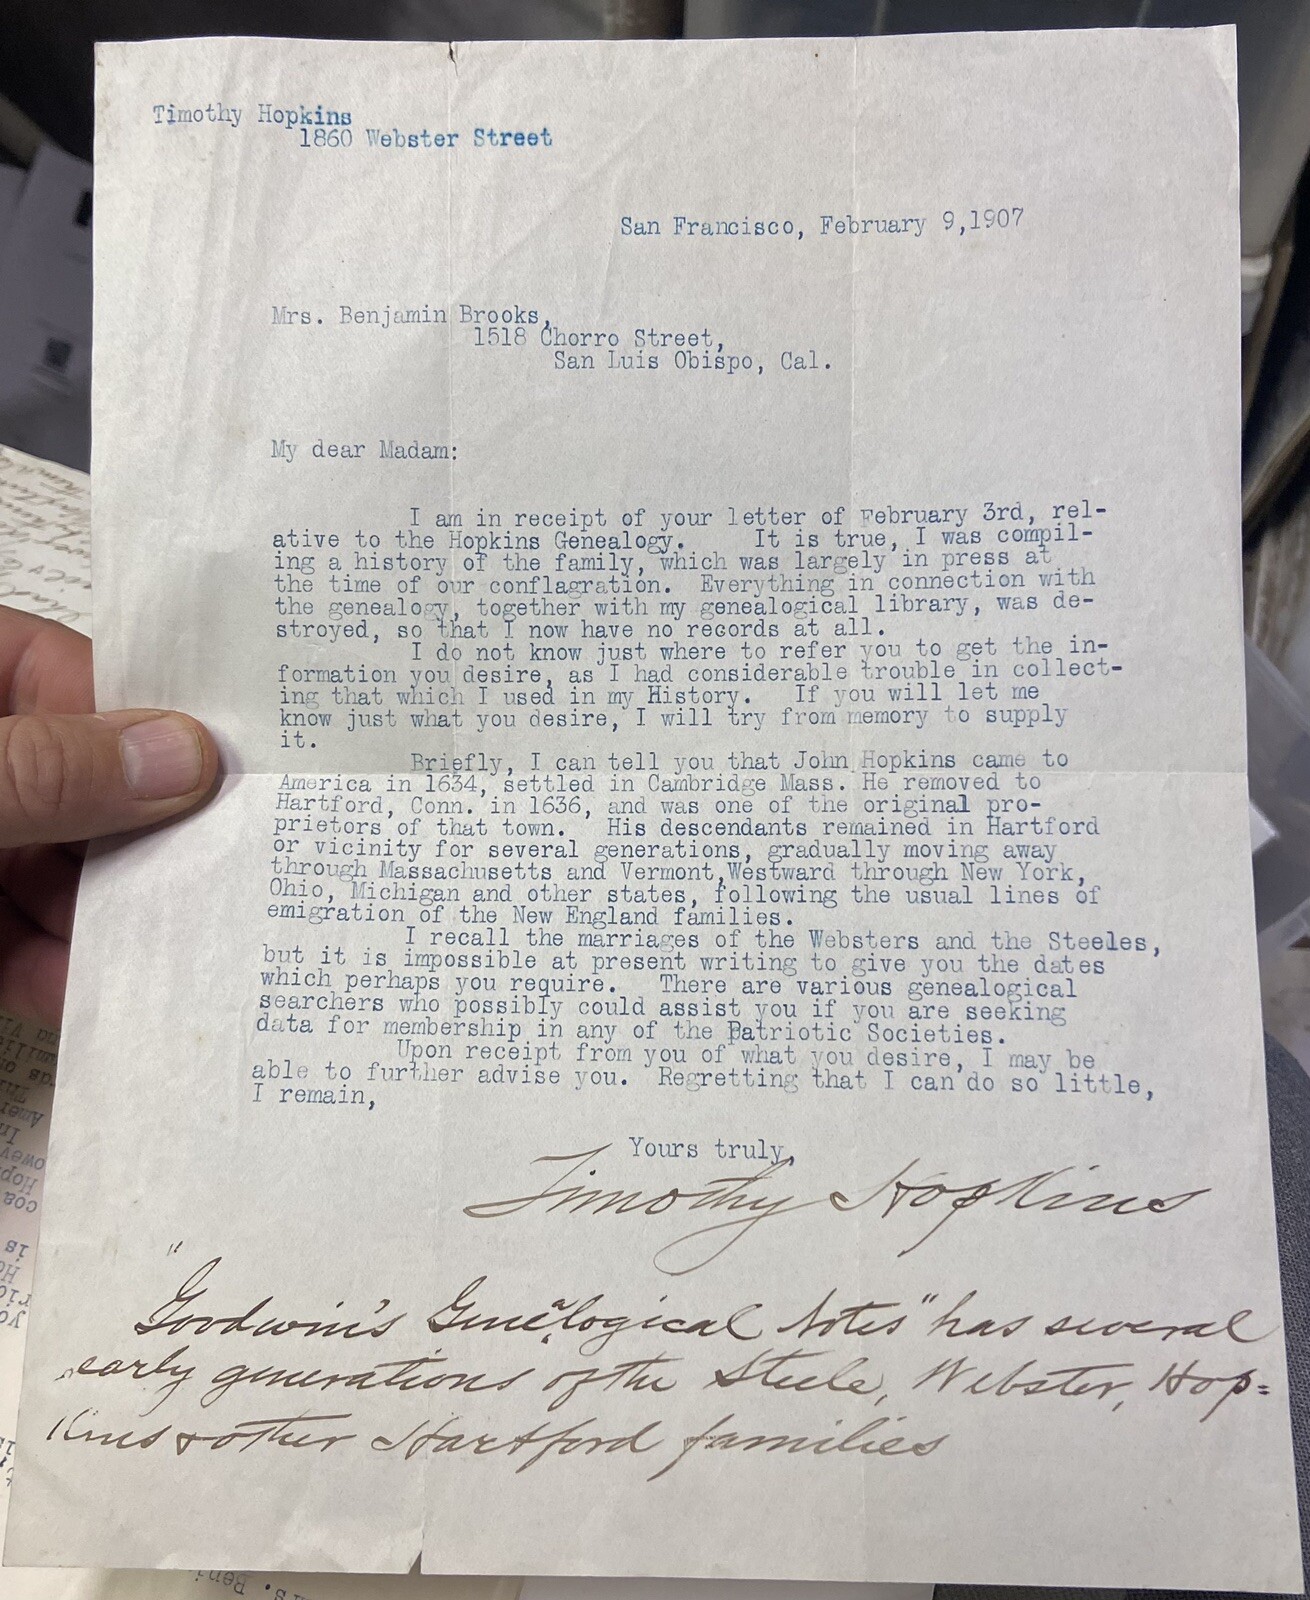 Timothy Hopkins
1860 Webster Street
San Francisco, February 9,1907
Mrs. Benjamin Brooks,
1518 Chorro Street,
San Luis Obispo, Cal.
My dear Madam:
I am in receipt of your letter of February 3rd, rel-
ative to the Hopkins Genealogy. It is true, I was compil-
ing a history of the family, which was largely in press at
the time of our conflagration. Everything in connection with
the genealogy, together with my genealogical library, was de-
stroyed, so that I now have no records at all.
I do not know just where to refer you to get the in-
formation you desire, as I had considerable trouble in collect-
ing that which I used in my History. If you will let me
know just what you desire, I will try from memory to supply
it.
Briefly, I can tell you that John Hopkins came to
America in 1634, settled in Cambridge Mass. He removed to
Hartford, Conn. in 1636, and was one of the original pro-
prietors of that town. His descendants remained in Hartford
or vicinity for several generations, gradually moving away
through Massachusetts and Vermont,Westward through New York,
Ohio, Michigan and other states, following the usual lines of
emigration of the New England families.
I recall the marriages of the Websters and the Steeles,
but it is impossible at present writing to give you the dates
which perhaps you require. There are various genealogical
searchers who possibly could assist you if you are seeking
data for membership in any of the Patriotic Societies.
Upon receipt from you of what you desire, I may be
able to further advise you. Regretting that I can do so little,
I remain,
Yours truly,
Timothy Hopkins
"Goodwin's Genealogical Notes" has several
early generations of the Steele, Webster, Hop=
kins & other Hartford families